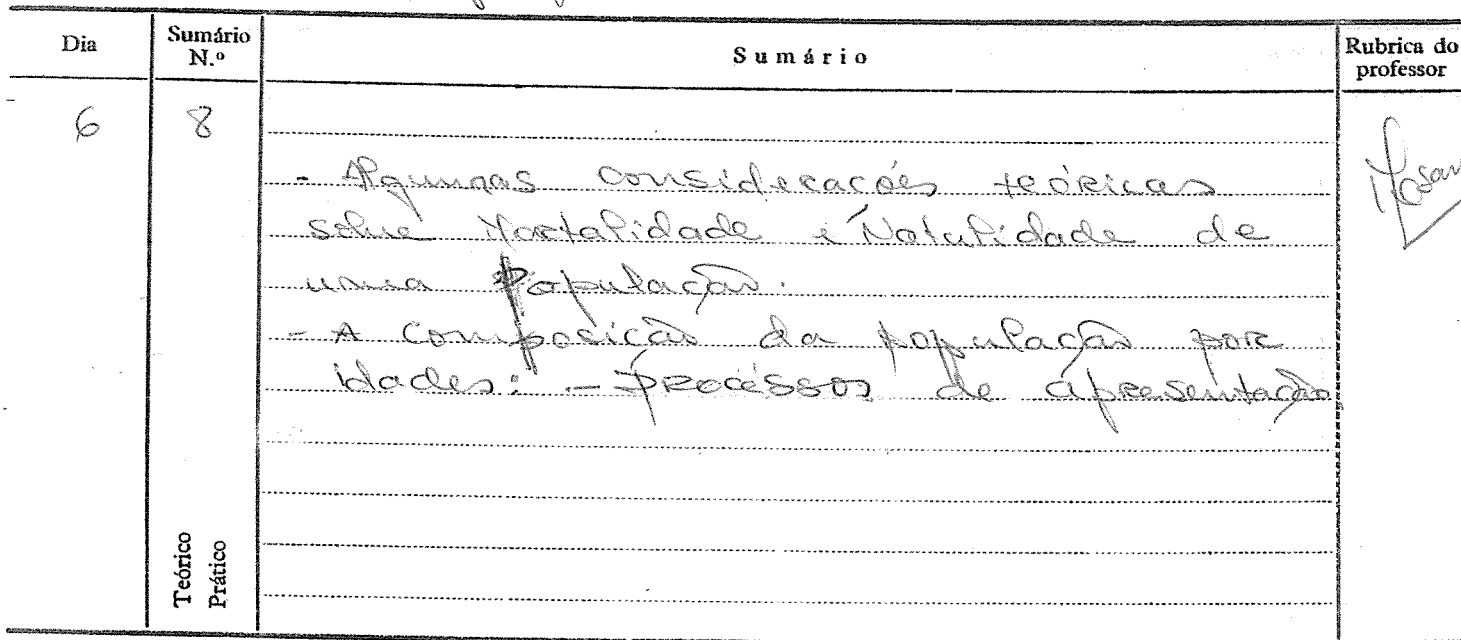 Dia
Sumário N.º
Sumário
Rubrica do professor
6
8
- Algumas considerações teóricas
sobre Mortalidade e Natalidade de
uma População.
- A composição da população por
idades: - processos de apresentação
Teórico
Prático